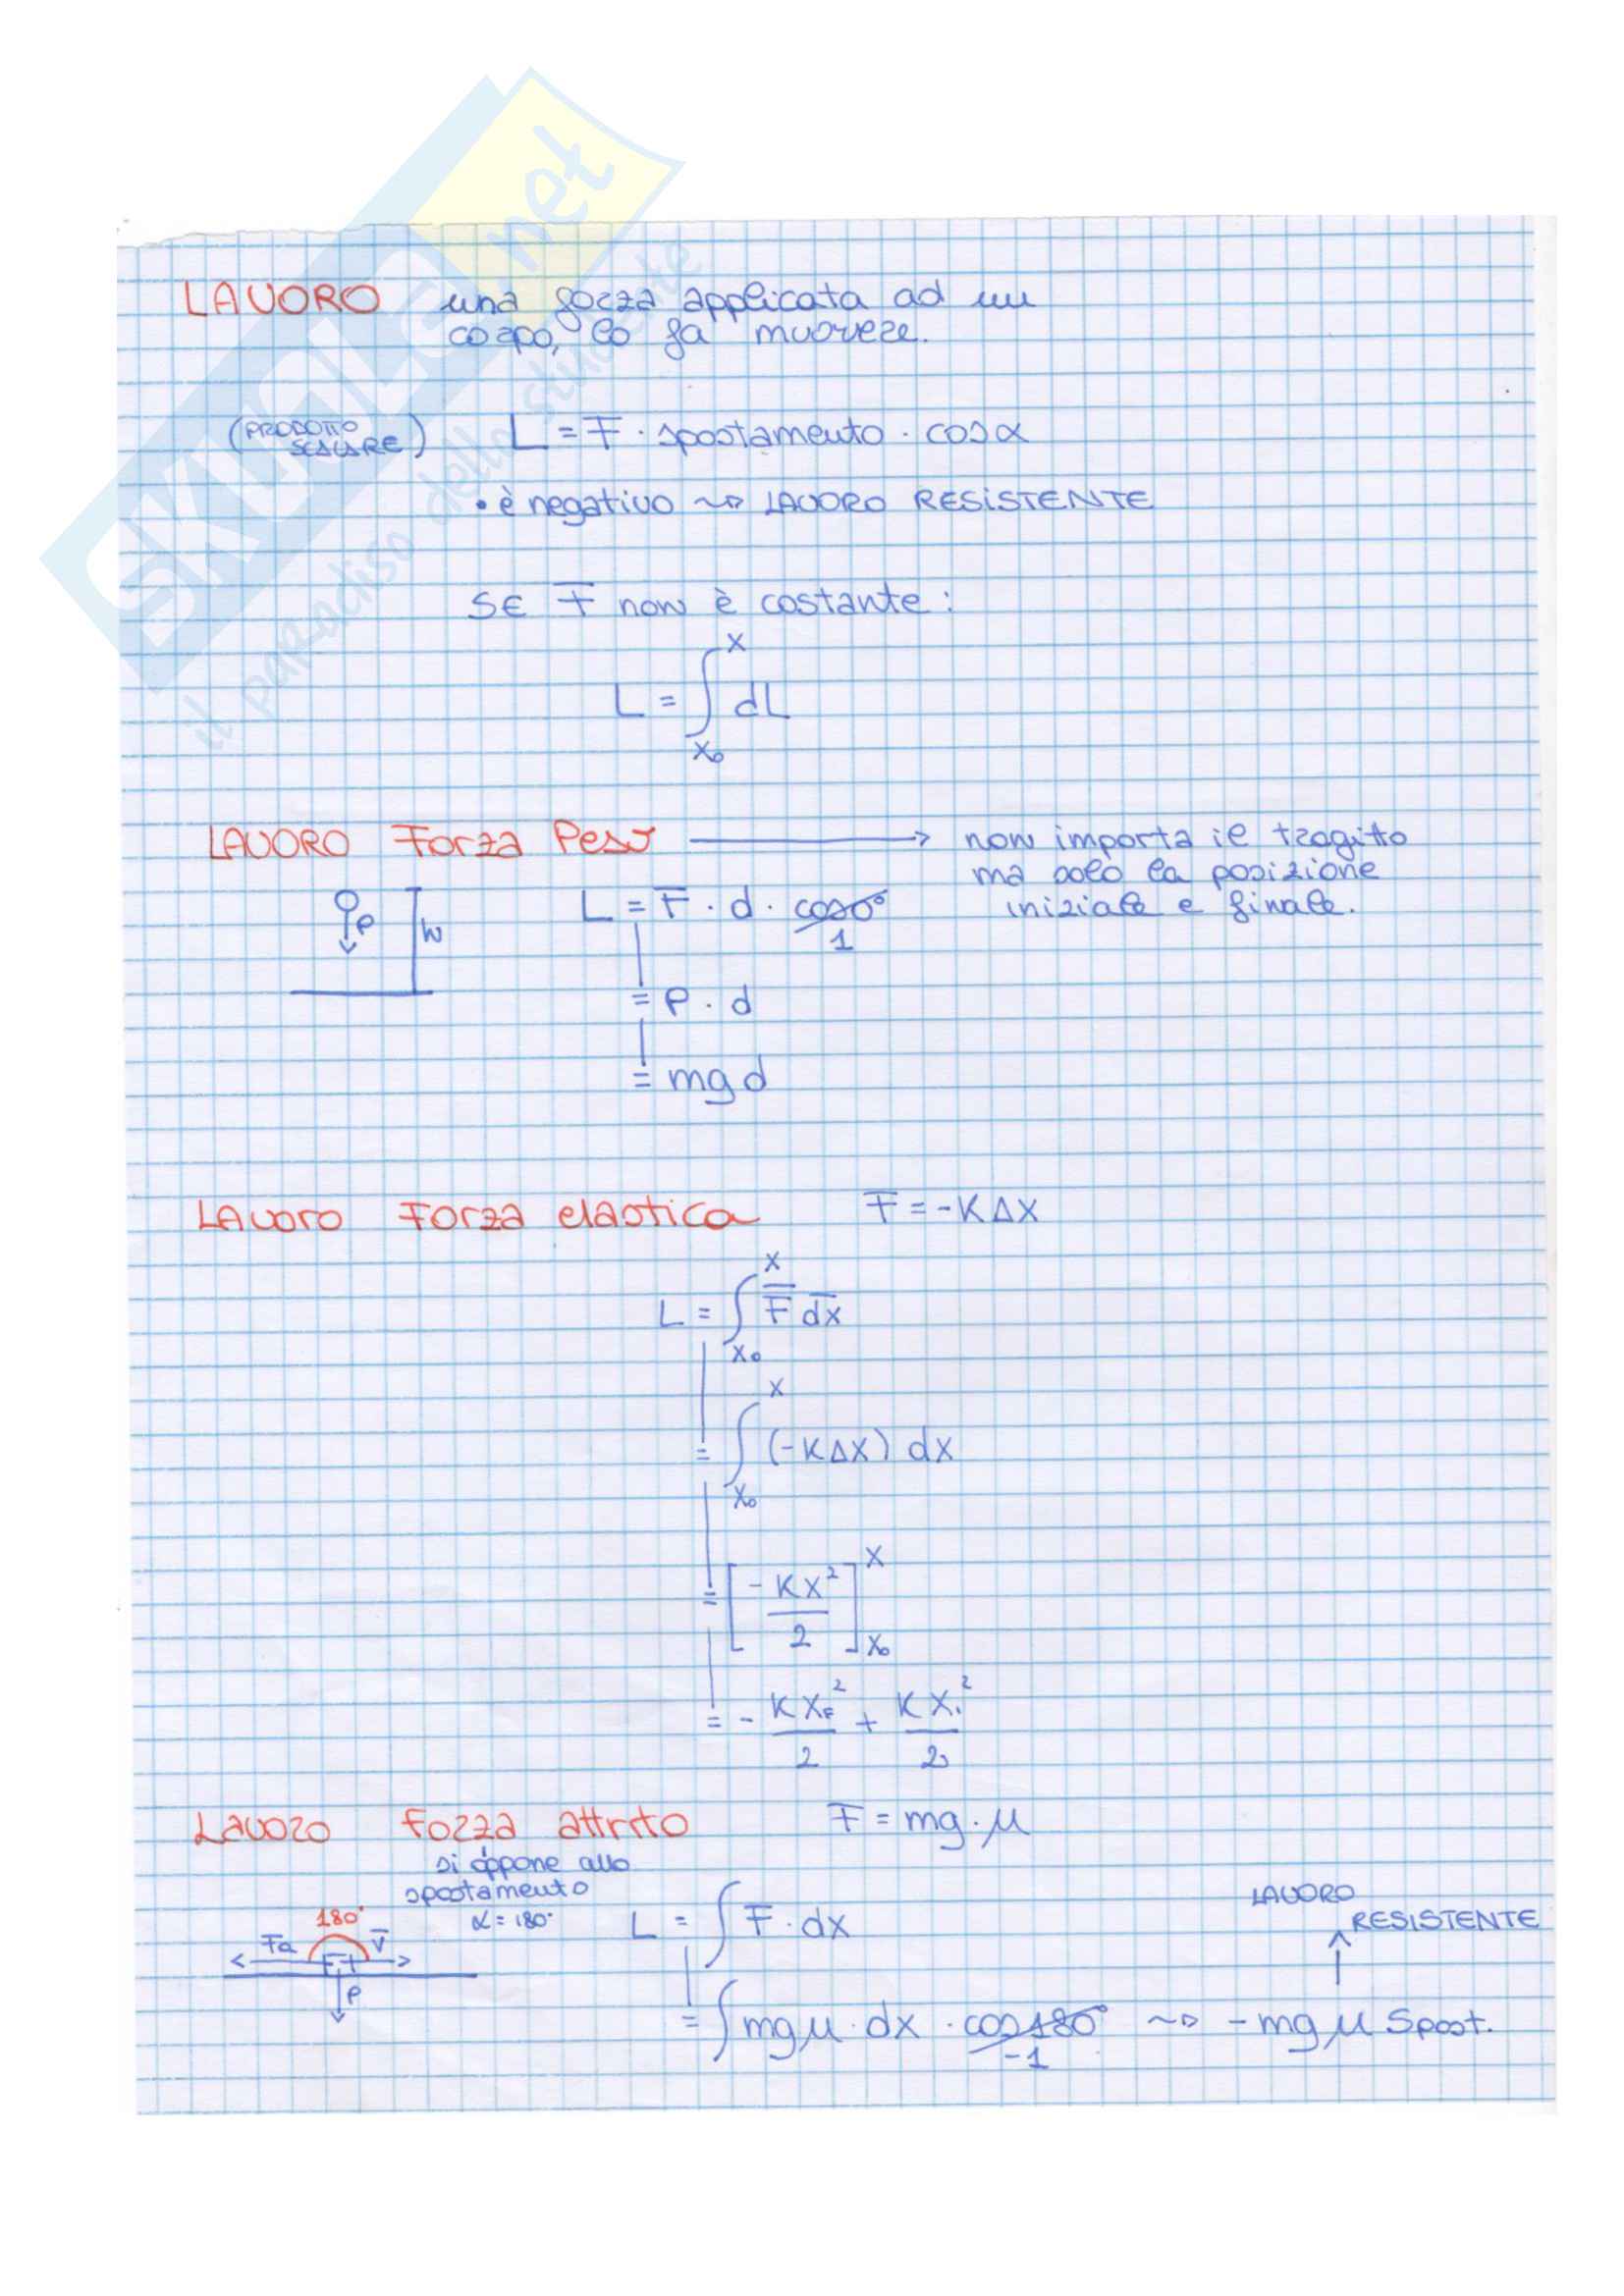 SKUOLA.net
il paradiso dello studente
LAVORO una forza applicata ad un
corpo, lo fa muovere.
(PRODOTTO SCALARE) L = F̅ · spostamento · cosα
• è negativo ~> LAVORO RESISTENTE
SE F̅ non è costante:
L = ∫_{x₀}^{x} dL
LAVORO Forza Peso → non importa il tragitto
ma solo la posizione
iniziale e finale.
P h
L = F̅ · d · cos0°
1
= P · d
= mgd
Lavoro Forza elastica F̅ = -KΔX
L = ∫_{x₀}^{x} F̅ d̅x̅
= ∫_{x₀}^{x} (-KΔX) dx
= [-KX²/2]_{x₀}^{x}
= - KX_F²/2 + KX_i²/2
Lavoro forza attrito F̅ = mg·μ
si oppone allo
spostamento
α = 180°
180°
F̅a V̅
P
L = ∫ F̅ · dx
LAVORO
RESISTENTE
= ∫ mgμ · dx · cos180° ~> -mgμ Spost.
-1